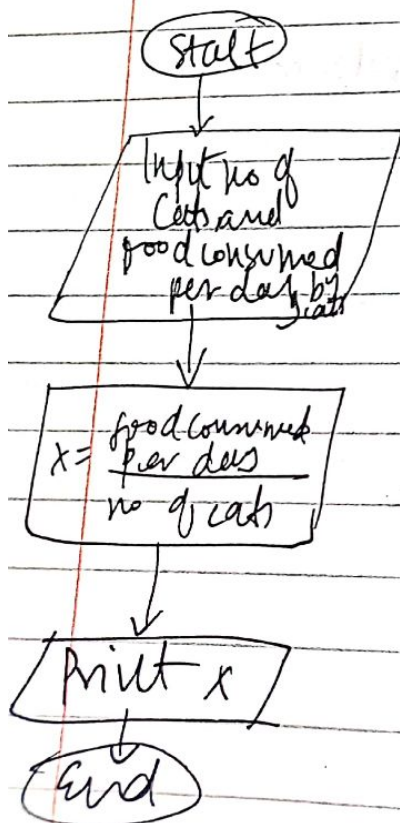 Start
Input no of
Cats and
food consumed
per day by
cats
food consumed
x = per day
no of cats
Print x
End